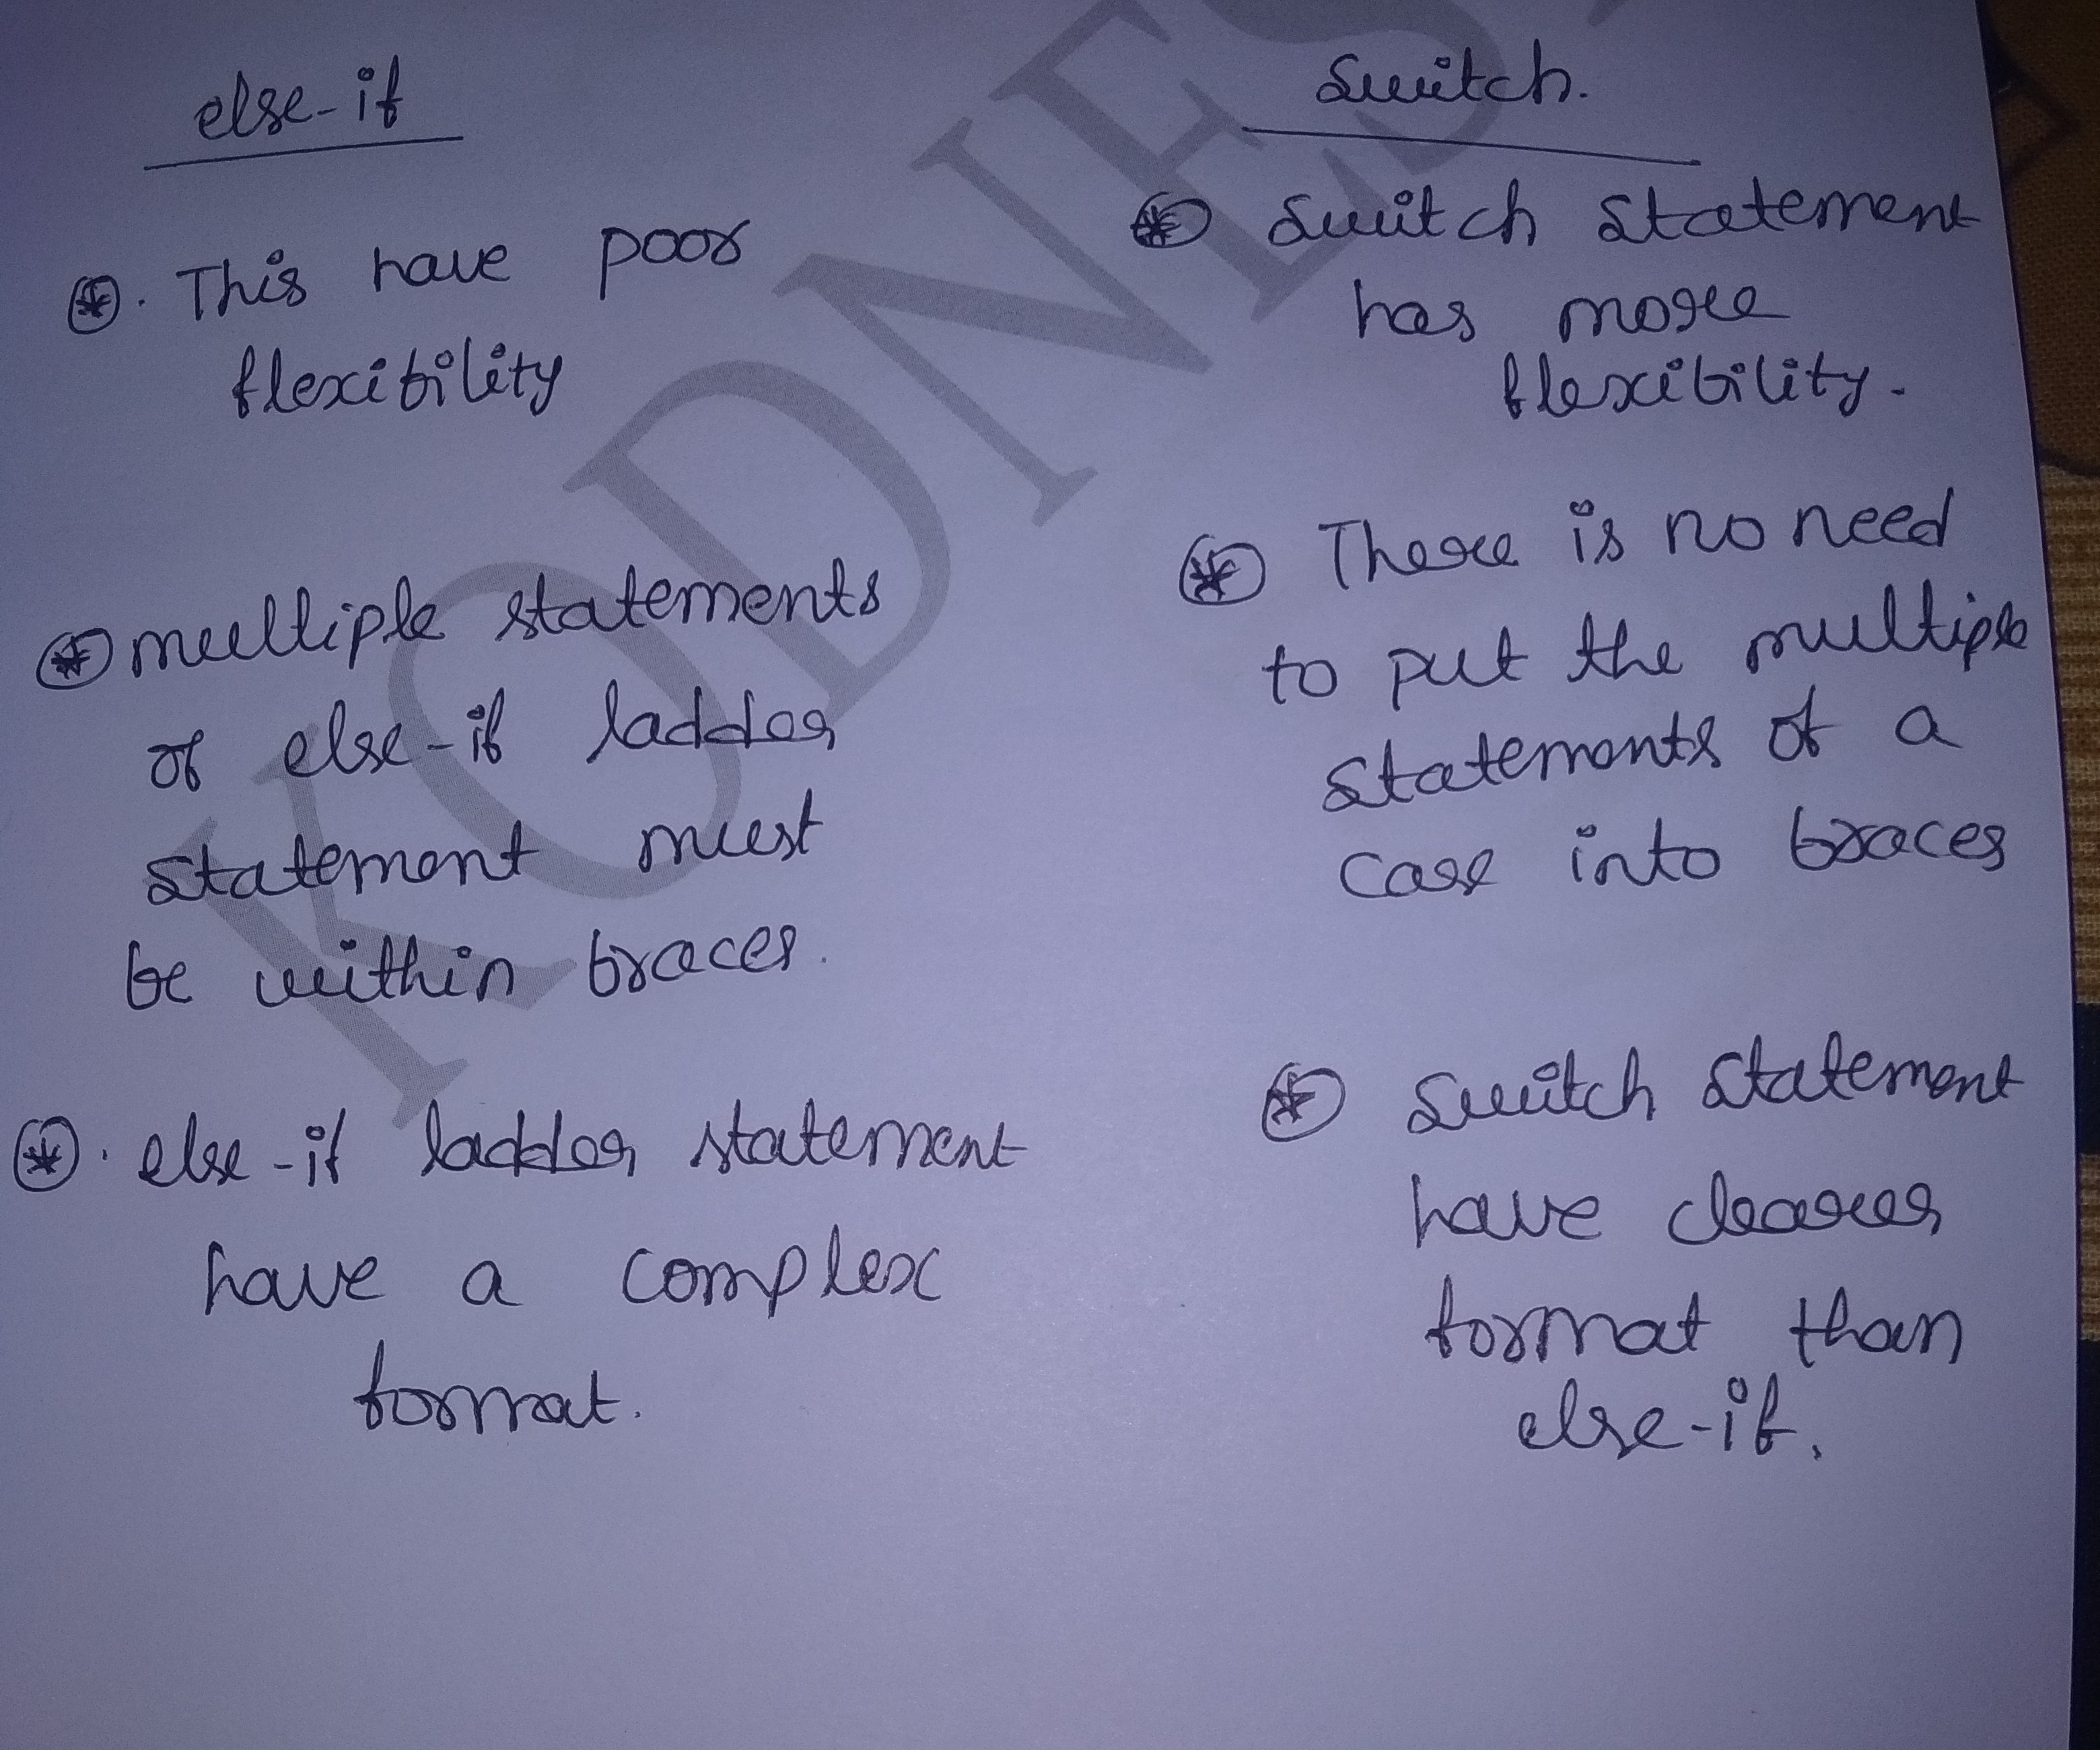 else-if
This have poor
flexibility
multiple statements
of else-if ladder
statement must
be within braces.
else-if ladder statement
have a complex
format.
Switch.
Switch statement
has more
flexibility.
There is no need
to put the multiple
statements of a
case into braces
Switch statement
have clearer
format than
else-if.
KODNES